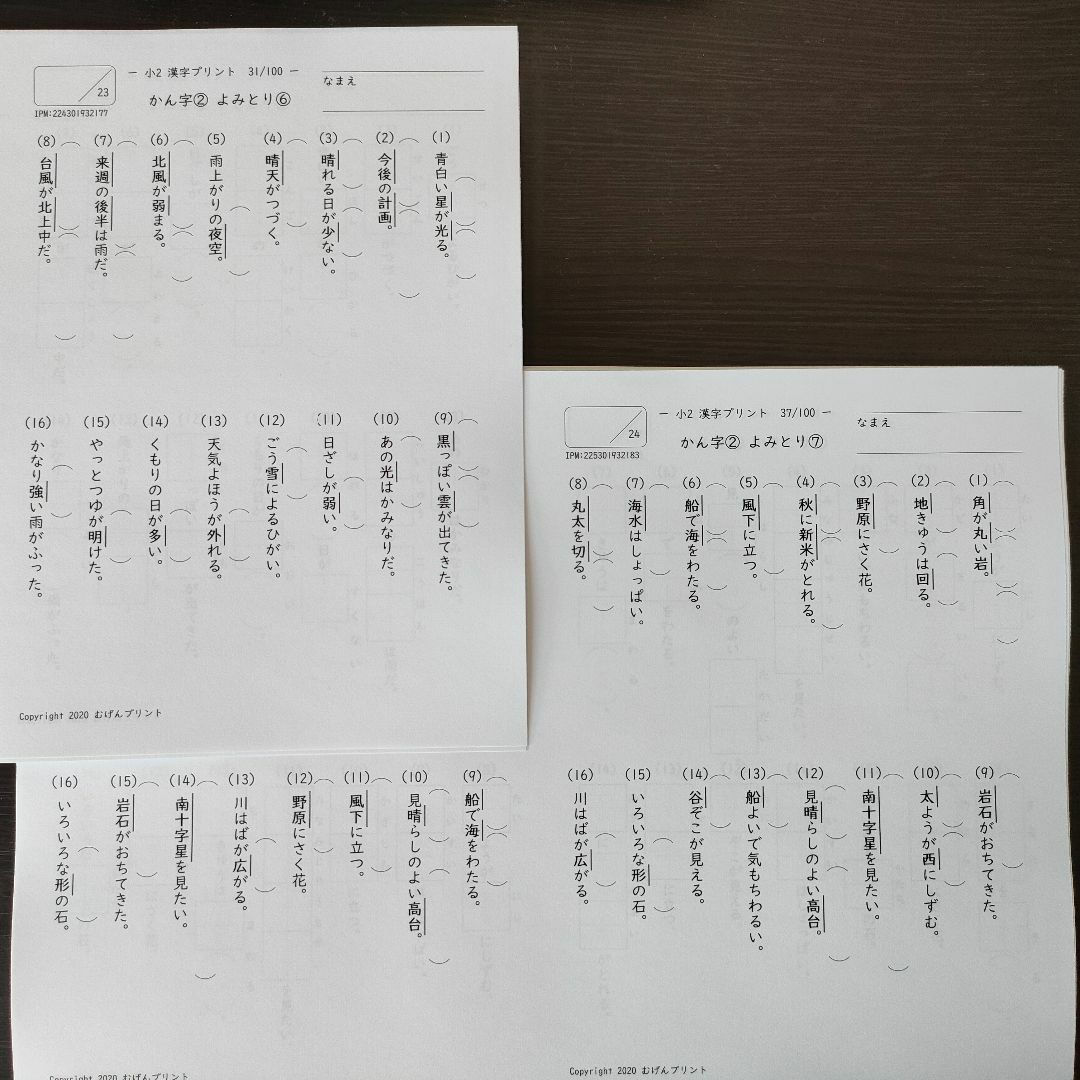 ― 小2 漢字プリント 31/100 ―
なまえ
23
かん字② よみとり⑥
IPM:224301932177
(1) 青白い星が光る。
(2) 今後の計画。
(3) 晴れる日が少ない。
(4) 晴天がつづく。
(5) 雨上がりの夜空。
(6) 北風が弱まる。
(7) 来週の後半は雨だ。
(8) 台風が北上中だ。
(9) 黒っぽい雲が出てきた。
(10) あの光はかみなりだ。
(11) 日ざしが弱い。
(12) ごう雪によるひがい。
(13) 天気よほうが外れる。
(14) くもりの日が多い。
(15) やっとつゆが明けた。
(16) かなり強い雨がふった。
Copyright 2020 むげんプリント
― 小2 漢字プリント 37/100 ―
なまえ
24
かん字② よみとり⑦
IPM:225301932183
(1) 角が丸い岩。
(2) 地きゅうは回る。
(3) 野原にさく花。
(4) 秋に新米がとれる。
(5) 風下に立つ。
(6) 船で海をわたる。
(7) 海水はしょっぱい。
(8) 丸太を切る。
(9) 岩石がおちてきた。
(10) 太ようが西にしずむ。
(11) 南十字星を見たい。
(12) 見晴らしのよい高台。
(13) 船よいで気もちわるい。
(14) 谷ぞこが見える。
(15) いろいろな形の石。
(16) 川はばが広がる。
Copyright 2020 むげんプリント
(9) 船で海をわたる。
(10) 見晴らしのよい高台。
(11) 風下に立つ。
(12) 野原にさく花。
(13) 川はばが広がる。
(14) 南十字星を見たい。
(15) 岩石がおちてきた。
(16) いろいろな形の石。
Copyright 2020 むげんプリント